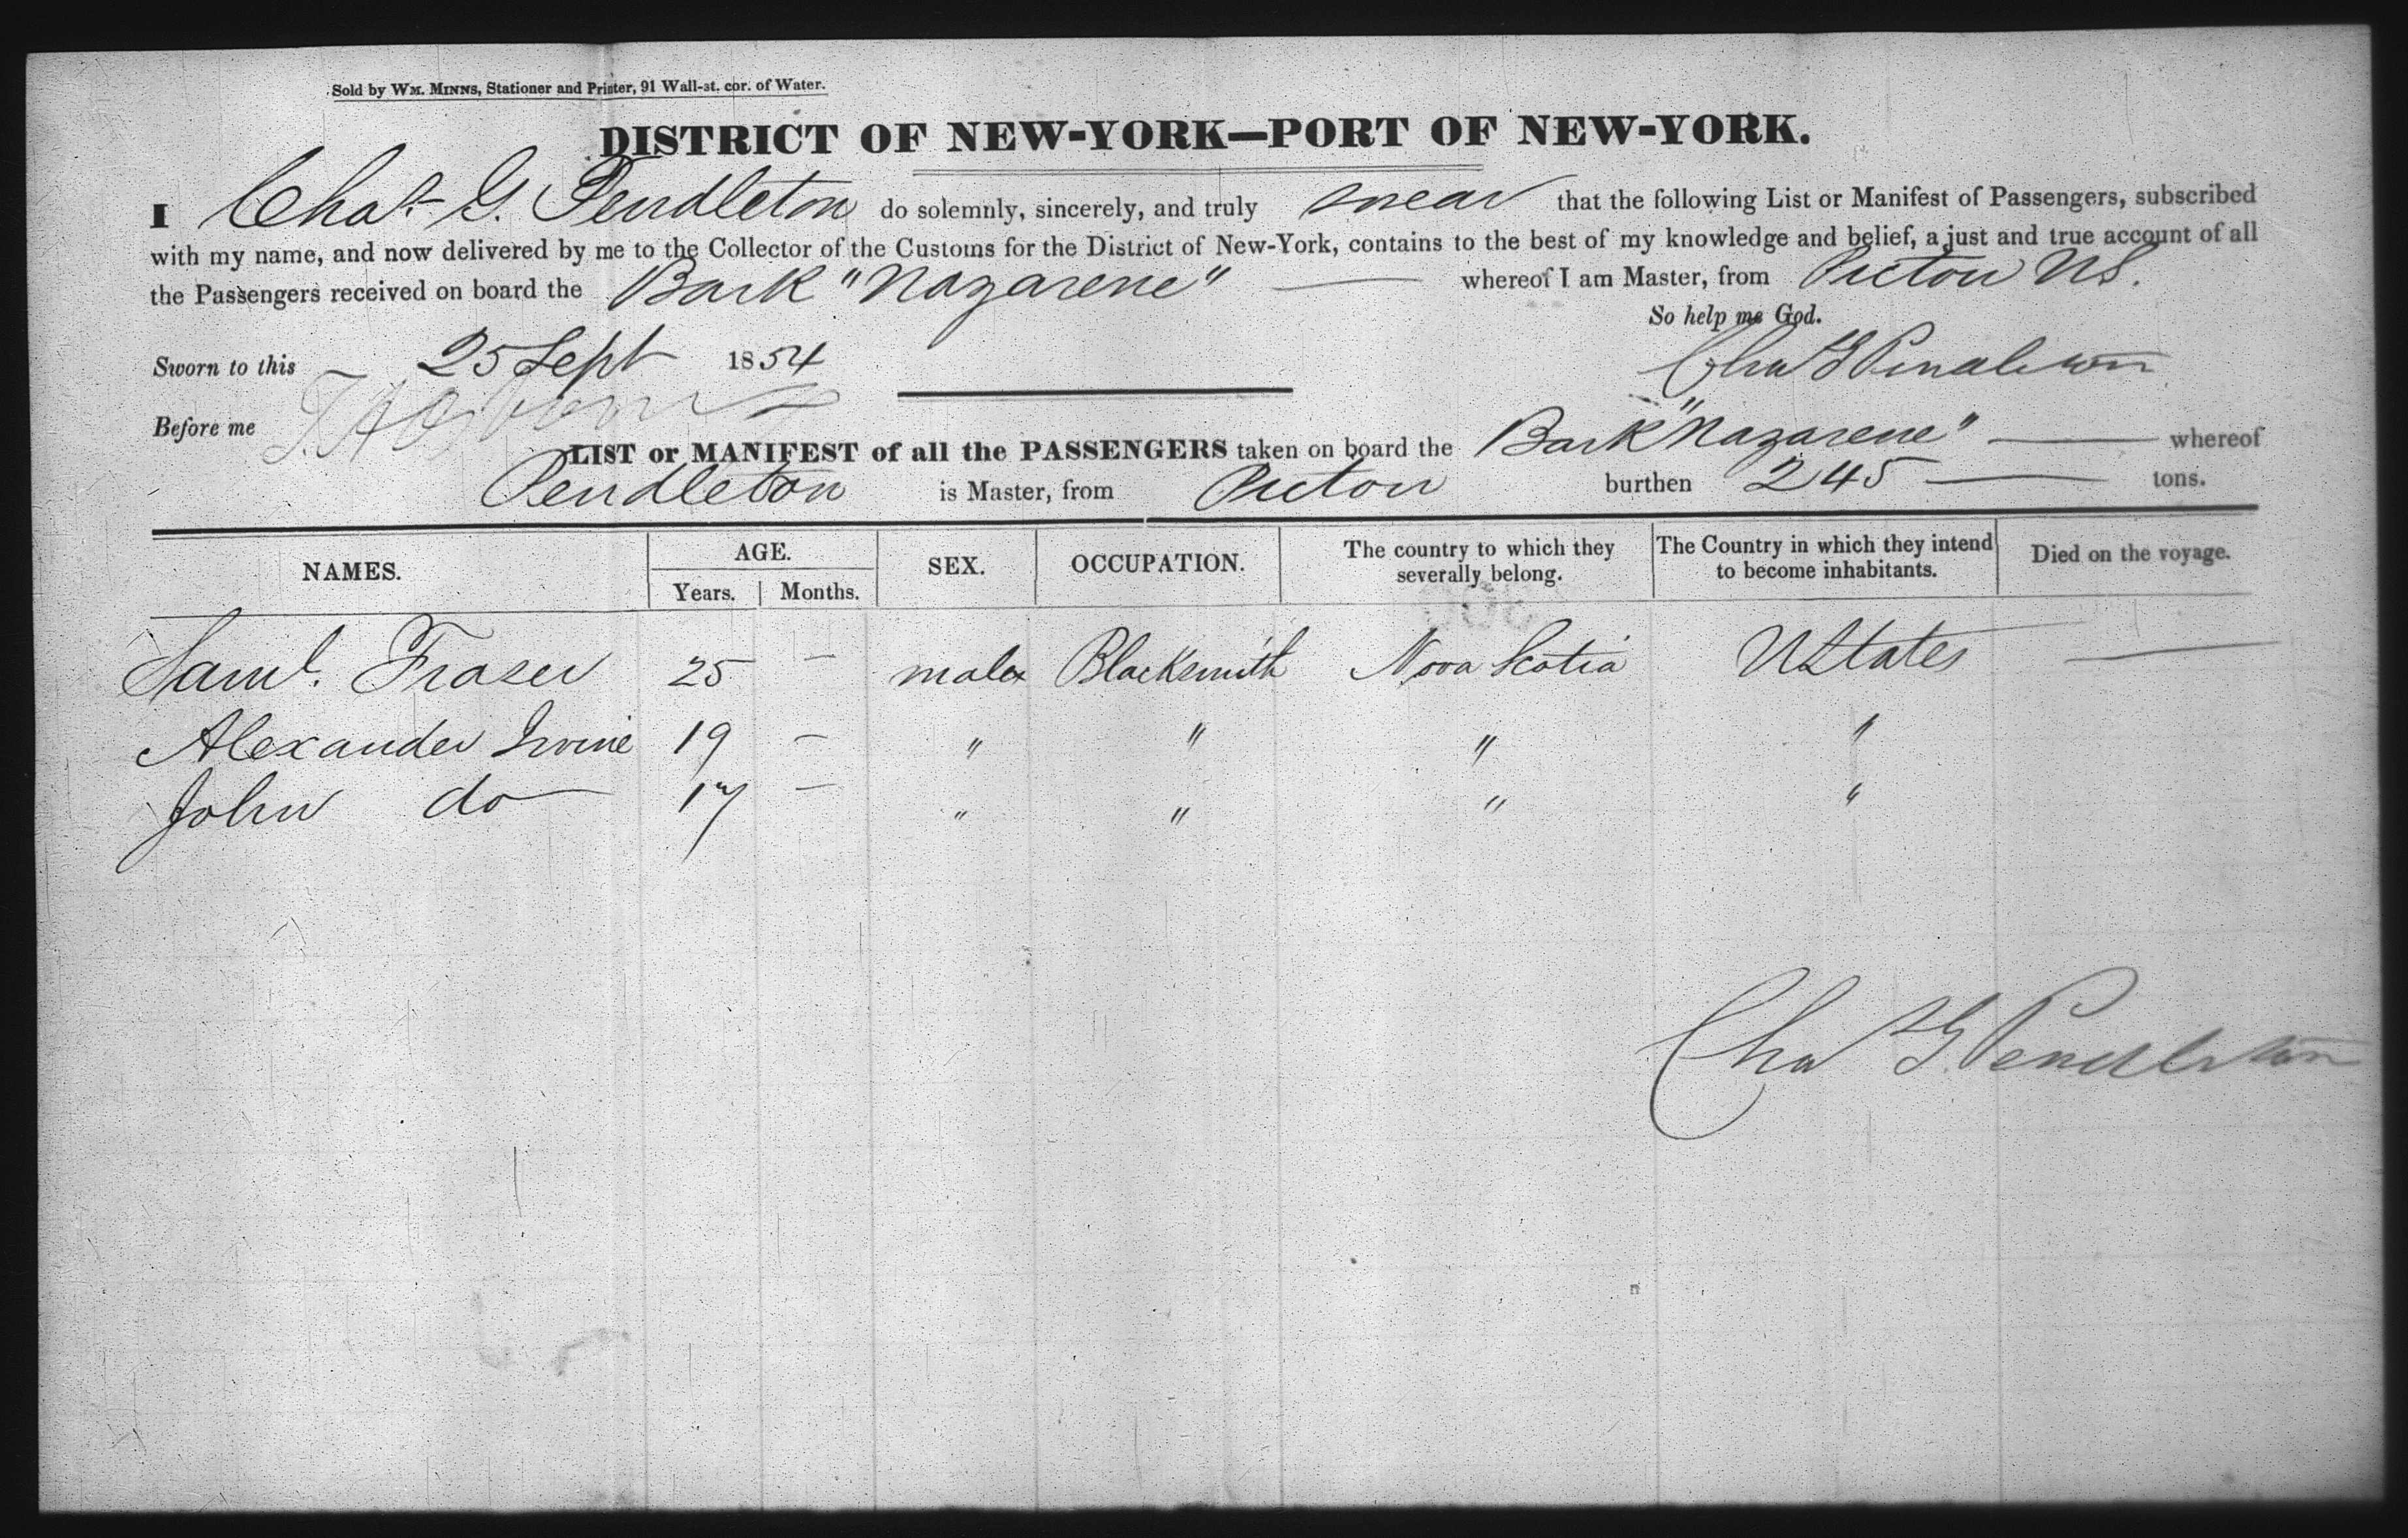 Sold by WM. MINNS, Stationer and Printer, 91 Wall-st. cor. of Water.
DISTRICT OF NEW-YORK—PORT OF NEW-YORK.
I Chas G. Pendleton do solemnly, sincerely, and truly swear that the following List or Manifest of Passengers, subscribed
with my name, and now delivered by me to the Collector of the Customs for the District of New-York, contains to the best of my knowledge and belief, a just and true account of all
the Passengers received on board the Bark "Nazarene" — whereof I am Master, from Pictou NS.
So help me God.
Sworn to this 25 Sept 1854 Chas G Pendleton
Before me
LIST or MANIFEST of all the PASSENGERS taken on board the Bark "Nazarene" — whereof
Pendleton is Master, from Pictou burthen 245 — tons.
NAMES. AGE. Years. Months. SEX. OCCUPATION. The country to which they severally belong. The Country in which they intend to become inhabitants. Died on the voyage.
Saml. Fraser 25 — male Blacksmith Nova Scotia U States —
Alexander Irvine 19 — " " " "
John do 17 — " " " "
Chas G. Pendleton